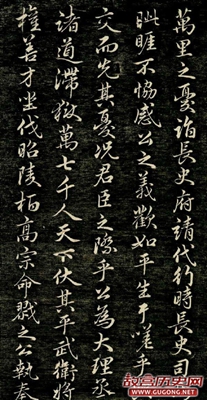 萬里之憂詣長史府請代行時長史司
眦睚不協感公之義歡如平生于嗟乎
交而先其憂況君臣之際乎公為大理丞
諸道滯獄萬七千人天下伏其平武衛將
權善才坐伐昭陵柏高宗命戮之公執奏
故宫历史网